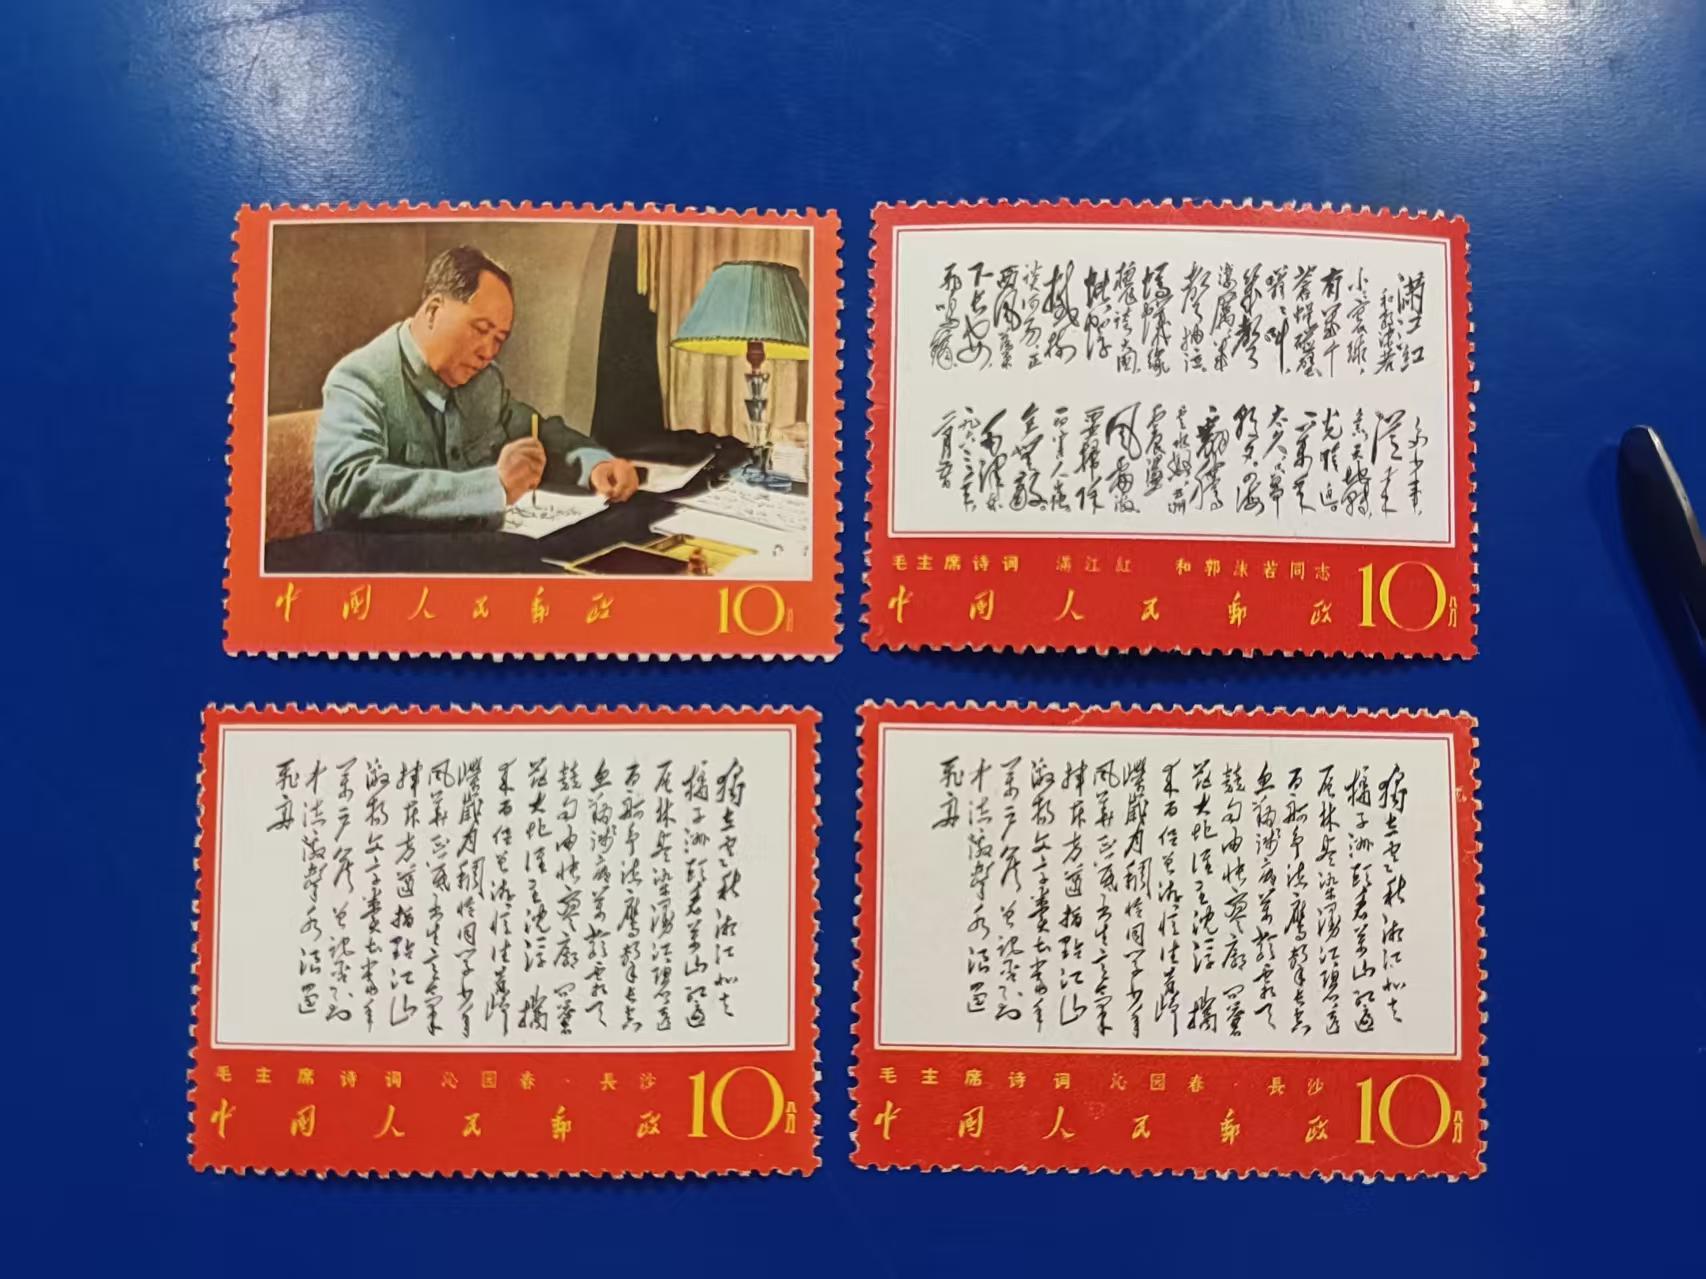 中国人民邮政 10分
满江红
和郭沫若
小小寰球，
有几个
苍蝇碰壁。
嗡嗡叫，
几声
凄厉，几
声抽泣。
蚂蚁缘
槐夸大国，
蚍蜉
撼树
谈何易。正
西风落叶
下长安，
飞鸣镝。
多少事，
从来
急，天地转，
光阴迫。
一万年
太久，只争
朝夕。四海
翻腾
云水怒，五洲
震荡
风雷激。
要扫除
一切害人虫，
全无敌。
毛泽东
一九六三年
毛主席诗词 满江红 和郭沫若同志
中国人民邮政 10分
独立寒秋湘江北去
橘子洲头看万山红遍
层林尽染漫江碧透
百舸争流鹰击长空
鱼翔浅底万类霜天
竞自由怅寥廓问苍
茫大地谁主沉浮 携
来百侣曾游忆往昔峥
嵘岁月稠恰同学少年
风华正茂书生意气
挥斥方遒指点江山
激扬文字粪土当年
万户侯曾记否到
中流击水浪遏
飞舟
毛主席诗词 沁园春·長沙
中国人民邮政 10分
独立寒秋湘江北去
橘子洲头看万山红遍
层林尽染漫江碧透
百舸争流鹰击长空
鱼翔浅底万类霜天
竞自由怅寥廓问苍
茫大地谁主沉浮 携
来百侣曾游忆往昔峥
嵘岁月稠恰同学少年
风华正茂书生意气
挥斥方遒指点江山
激扬文字粪土当年
万户侯曾记否到
中流击水浪遏
飞舟
毛主席诗词 沁园春·長沙
中国人民邮政 10分